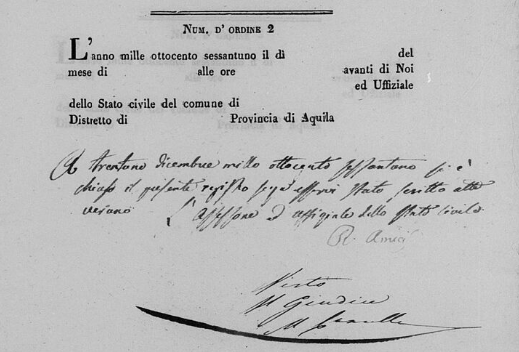 NUM. D' ORDINE 2
L'anno mille ottocento sessantuno il dì del
mese di alle ore avanti di Noi
ed Uffiziale
dello Stato civile del comune di
Distretto di Provincia di Aquila
A trentuno dicembre mille ottocento sessantuno si è
chiuso il presente registro senza esservi stato scritto atto
veruno
L'Assessore ed uffiziale dello Stato Civile
Visto
Il Giudice